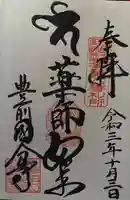 奉拝
令和三年十月三日
薬師如来
豊前国分寺